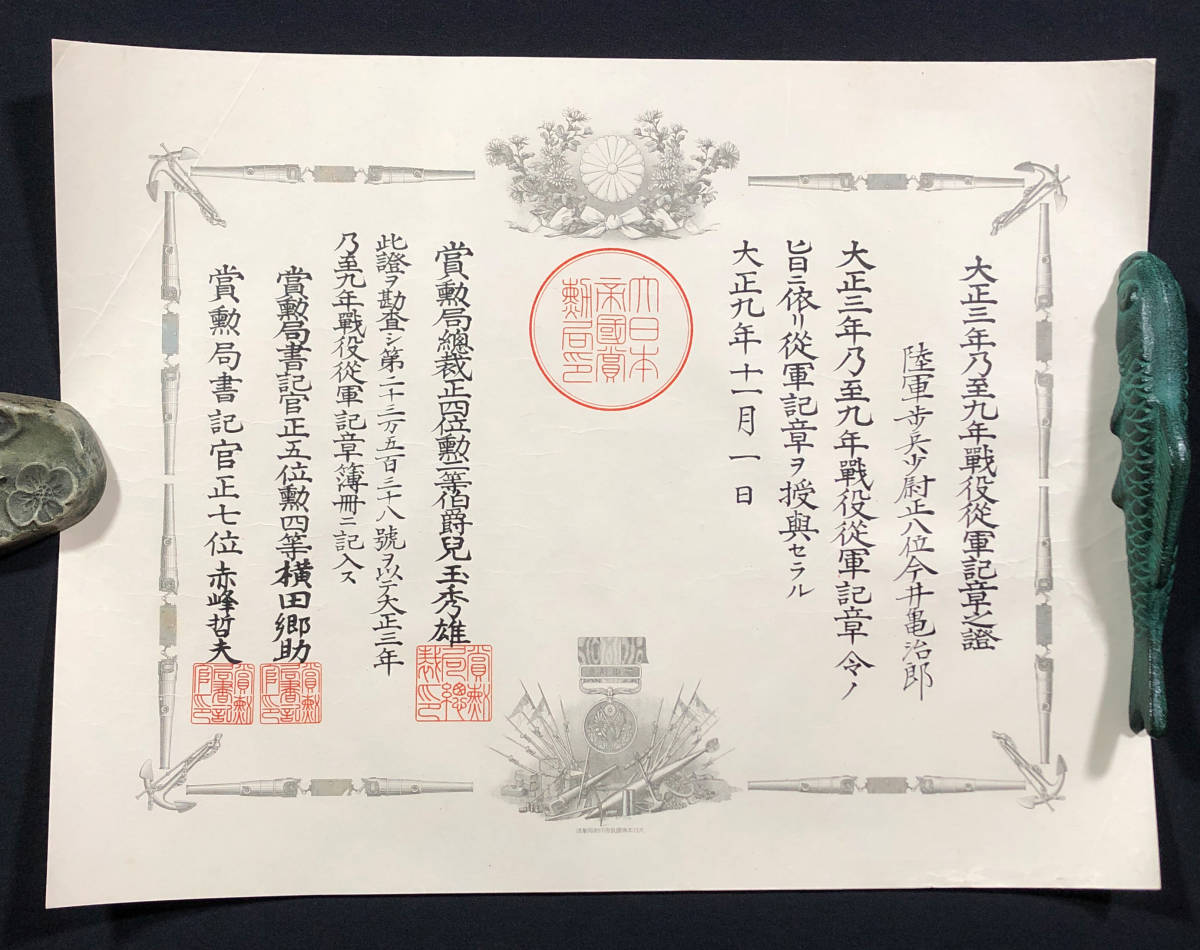 大正三年乃至九年戰役從軍記章之證
陸軍歩兵少尉正八位今井亀治郎
大正三年乃至九年戰役從軍記章令ノ
旨ニ依リ從軍記章ヲ授與セラル
大正九年十一月一日
大日本
帝國賞
勲局印
賞勲局總裁正四位勲二等伯爵兒玉秀雄
賞勲
局總
裁印
此證ヲ勘査シ第二十三万五百三十八號ヲ以テ大正三年
乃至九年戰役從軍記章簿冊ニ記入ス
賞勲局書記官正五位勲四等横田郷助
賞勲
局書記
官印
賞勲局書記官正七位赤峰哲夫
賞勲
局書記
官印